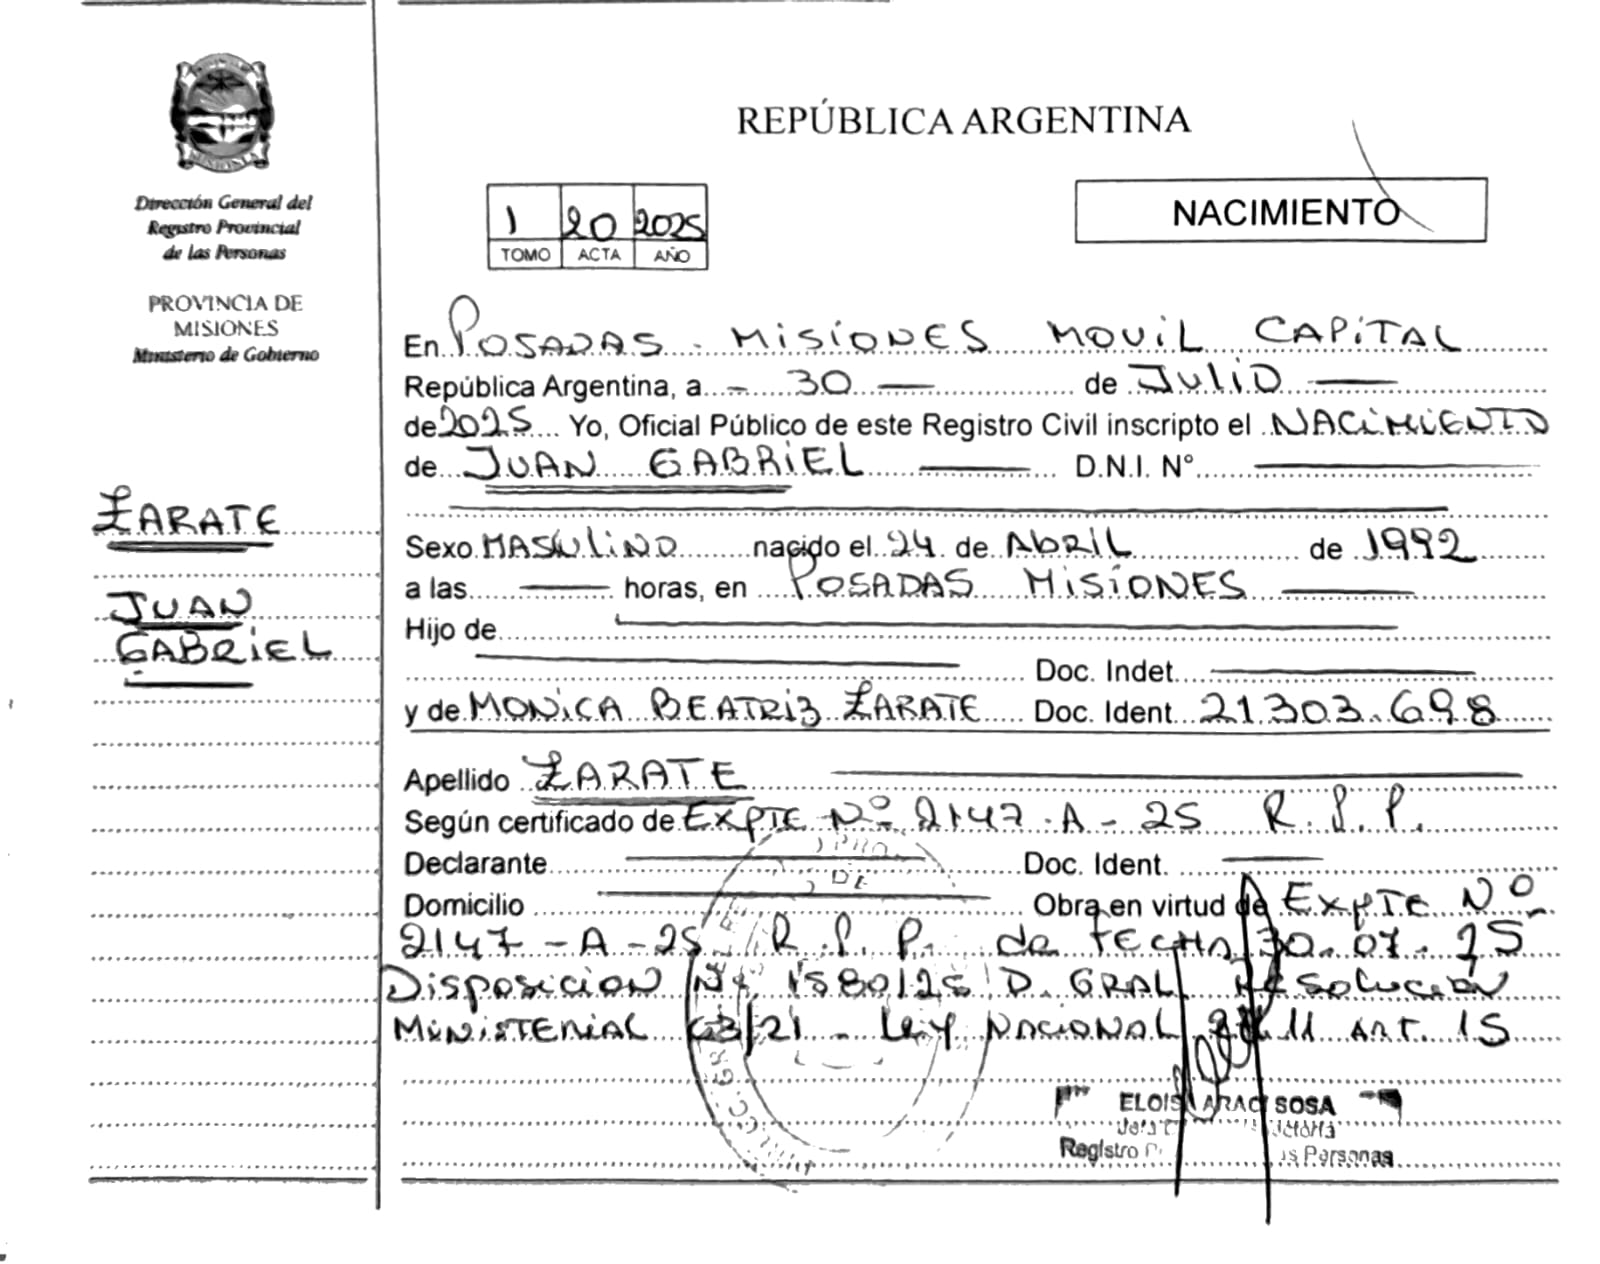 Dirección General del
Registro Provincial
de las Personas
PROVINCIA DE
MISIONES
Ministerio de Gobierno
ZARATE
JUAN
GABRIEL
REPÚBLICA ARGENTINA
1 20 2025
TOMO ACTA AÑO
NACIMIENTO
En POSADAS - MISIONES MOVIL CAPITAL
República Argentina, a - 30 — de JULIO —
de 2025 Yo, Oficial Público de este Registro Civil inscripto el NACIMIENTO
de JUAN GABRIEL — D.N.I. Nº —
Sexo MASCULINO nacido el 24 de ABRIL de 1992
a las — horas, en POSADAS MISIONES —
Hijo de —
Doc. Indet. —
y de MONICA BEATRIZ ZARATE Doc. Ident. 21.303.698
Apellido ZARATE —
Según certificado de EXPTE Nº 2147-A-25 R.P.P.
Declarante — Doc. Ident. —
Domicilio — Obra en virtud de EXPTE Nº
2147-A-25 R.P.P. de FECHA 30.07.25
DISPOSICION Nº 1580/25 D. GRAL RESOLUCION
MINISTERIAL 63/21 - LEY NACIONAL ART. 15
SOSA
Registro Personas